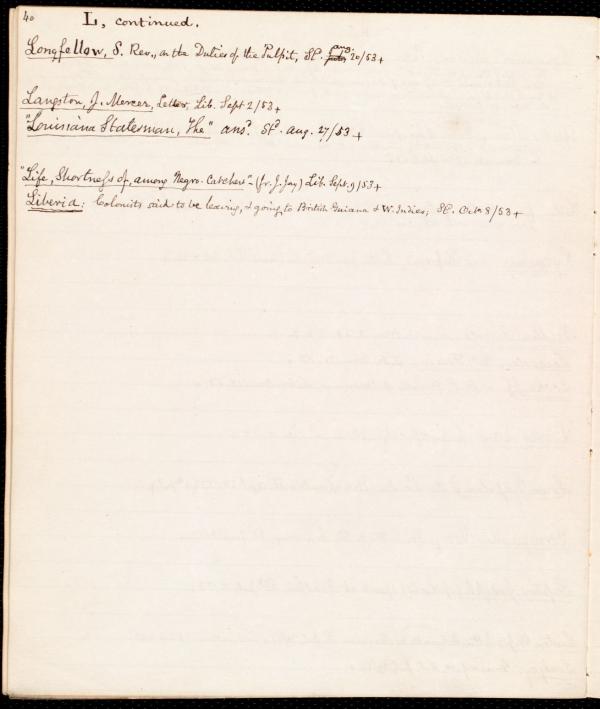 40
L, continued.
Longfellow, S. Rev., on the Duties of the Pulpit, St. aug. 20/53 +
Langston, J. Mercer, Letter, Lib. Sept 2/53 +
"Louisiana Statesman, The" ansd. St. aug. 27/53 +
"Life, Shortness of, among Negro-Catchers" - (fr. J. Jay) Lib. Sept. 9/53 +
Liberia: Colonists said to be leaving, & going to British Guiana & W. Indies; St. Octr. 8/53 +